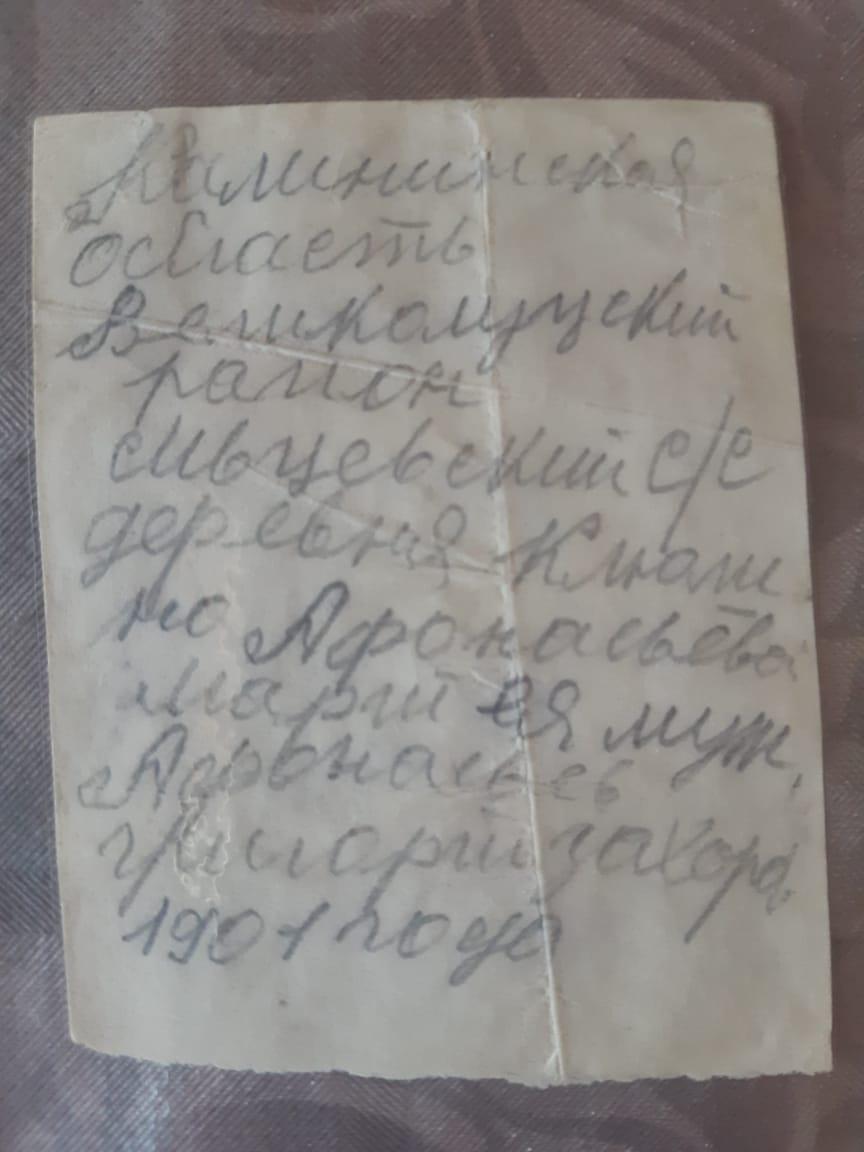 Калининская
область
Великолуцкий
район
Сивцевский с/с
деревня Клюши
но Афонасьева
Марий ея муж,
Афонасьев
Григорий Захоро
1901 года